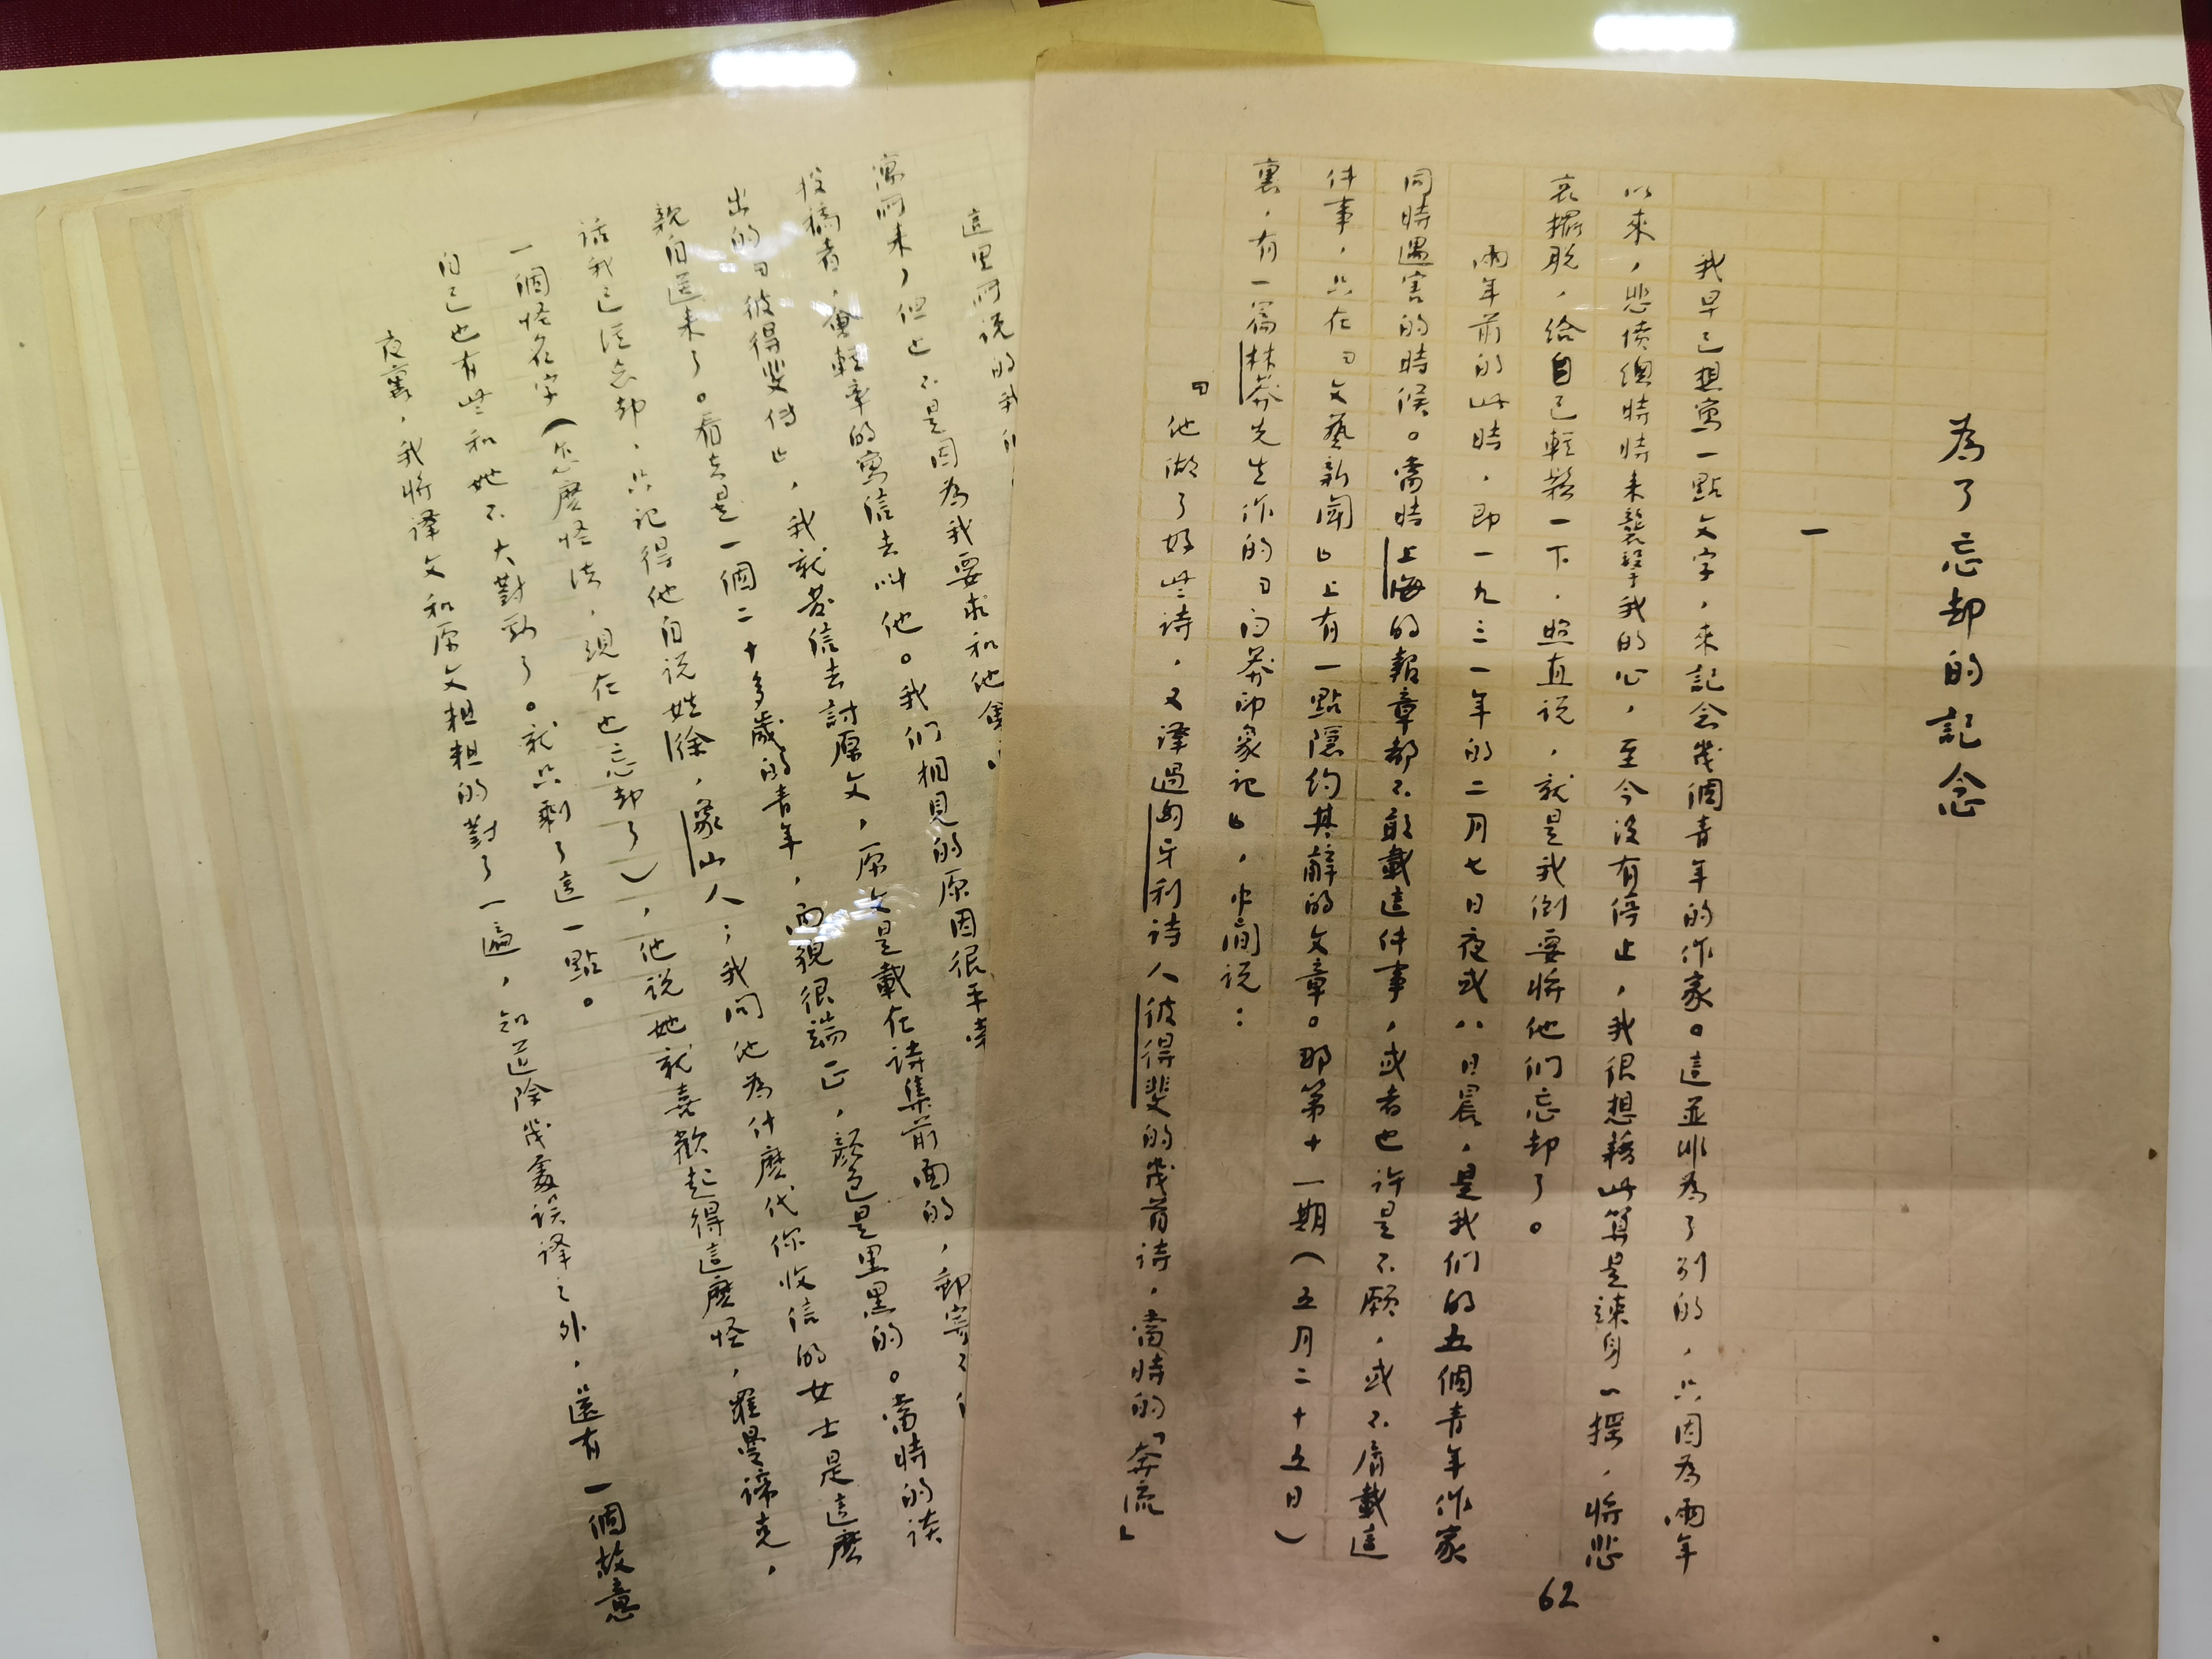 為了忘却的記念
一
我早已想寫一點文字，來記念幾個青年的作家。這並非為了別的，只因為兩年
以來，悲憤總時時來襲擊我的心，至今沒有停止，我很想藉此算是竦身一搖，將悲
哀擺脫，給自己輕鬆一下，照直说，就是我倒要將他们忘却了。
兩年前的此時，即一九三一年的二月七日夜或八日晨，是我们的五個青年作家
同時遇害的時候。當時上海的報章都不敢載這件事，或者也许是不願，或不屑載這
件事，只在『文藝新聞』上有一點隱約其辭的文章。那第十一期（五月二十五日）
裏，有一篇林莽先生作的『白莽印象記』，中間说：
『他做了好些诗，又译過匈牙利诗人彼得斐的幾首诗，當時的「奔流」
62
這里所说的我们
寓所来，但也不是因為我要求和他會
投稿者，會輕率的寫信去叫他。我们相見的原因很平常
出的『彼得斐传』，我就发信去討原文，原文是載在诗集前面的，郵寄不
親自送来了。看去是一個二十多歲的青年，面貌很端正，顔色是黑黑的。當時的谈
话我已经忘却，只记得他自说姓徐，象山人；我问他為什麽代你收信的女士是這麽
一個怪名字（怎麽怪法，現在也忘却了），他说她就喜歡起得這麽怪，羅曼諦克，
自己也有些和她不大對勁了。就只剩了這一點。
夜裏，我將译文和原文粗粗的對了一遍，知道除幾處误译之外，還有一個故意